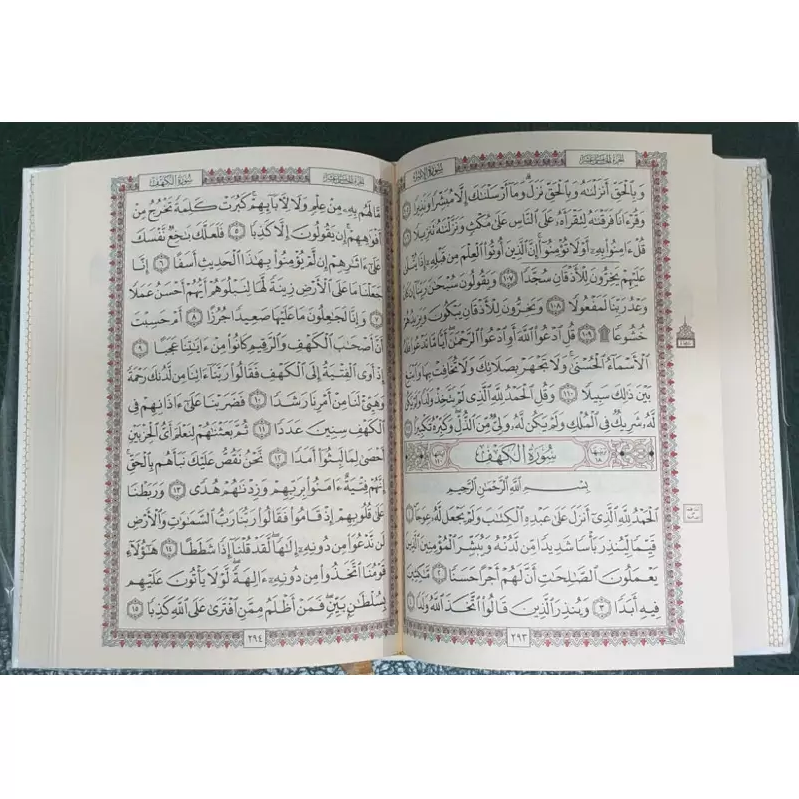 الجزء الخامس عشر
سورة الإسراء
وَبِالْحَقِّ أَنزَلْنَٰهُ وَبِالْحَقِّ نَزَلَ ۗ وَمَآ أَرْسَلْنَٰكَ إِلَّا مُبَشِّرًا وَنَذِيرًا
وَقُرْءَانًا فَرَقْنَٰهُ لِتَقْرَأَهُۥ عَلَى النَّاسِ عَلَىٰ مُكْثٍ وَنَزَّلْنَٰهُ تَنزِيلًا
قُلْ ءَامِنُوا۟ بِهِۦٓ أَوْ لَا تُؤْمِنُوٓا۟ ۚ إِنَّ الَّذِينَ أُوتُوا۟ الْعِلْمَ مِن قَبْلِهِۦٓ إِذَا يُتْلَىٰ
عَلَيْهِمْ يَخِرُّونَ لِلْأَذْقَانِ سُجَّدًا ١٠٧ وَيَقُولُونَ سُبْحَٰنَ رَبِّنَآ إِن كَانَ
وَعْدُ رَبِّنَا لَمَفْعُولًا ١٠٨ وَيَخِرُّونَ لِلْأَذْقَانِ يَبْكُونَ وَيَزِيدُهُمْ
خُشُوعًا ۩ ١٠٩ قُلِ ادْعُوا۟ اللَّهَ أَوِ ادْعُوا۟ الرَّحْمَٰنَ ۖ أَيًّا مَّا تَدْعُوا۟ فَلَهُ
الْأَسْمَآءُ الْحُسْنَىٰ ۚ وَلَا تَجْهَرْ بِصَلَاتِكَ وَلَا تُخَافِتْ بِهَا وَابْتَغِ
بَيْنَ ذَٰلِكَ سَبِيلًا ١١٠ وَقُلِ الْحَمْدُ لِلَّهِ الَّذِى لَمْ يَتَّخِذْ وَلَدًا وَلَمْ يَكُن
لَّهُۥ شَرِيكٌ فِى الْمُلْكِ وَلَمْ يَكُن لَّهُۥ وَلِىٌّ مِّنَ الذُّلِّ ۖ وَكَبِّرْهُ تَكْبِيرًۢا
سُورَةُ الكَهْفِ
بِسْمِ اللَّهِ الرَّحْمَٰنِ الرَّحِيمِ
الْحَمْدُ لِلَّهِ الَّذِىٓ أَنزَلَ عَلَىٰ عَبْدِهِ الْكِتَٰبَ وَلَمْ يَجْعَل لَّهُۥ عِوَجَاۜ ١
قَيِّمًا لِّيُنذِرَ بَأْسًا شَدِيدًا مِّن لَّدُنْهُ وَيُبَشِّرَ الْمُؤْمِنِينَ الَّذِينَ
يَعْمَلُونَ الصَّٰلِحَٰتِ أَنَّ لَهُمْ أَجْرًا حَسَنًا ٢ مَّٰكِثِينَ
فِيهِ أَبَدًا ٣ وَيُنذِرَ الَّذِينَ قَالُوا۟ اتَّخَذَ اللَّهُ وَلَدًا ٤
٢٩٣
سورة الكهف
الجزء الخامس عشر
مَّا لَهُم بِهِۦ مِنْ عِلْمٍ وَلَا لِءَابَآئِهِمْ ۚ كَبُرَتْ كَلِمَةً تَخْرُجُ مِنْ
أَفْوَٰهِهِمْ ۚ إِن يَقُولُونَ إِلَّا كَذِبًا ٥ فَلَعَلَّكَ بَٰخِعٌ نَّفْسَكَ
عَلَىٰٓ ءَاثَٰرِهِمْ إِن لَّمْ يُؤْمِنُوا۟ بِهَٰذَا الْحَدِيثِ أَسَفًا ٦ إِنَّا
جَعَلْنَا مَا عَلَى الْأَرْضِ زِينَةً لَّهَا لِنَبْلُوَهُمْ أَيُّهُمْ أَحْسَنُ عَمَلًا
٧ وَإِنَّا لَجَٰعِلُونَ مَا عَلَيْهَا صَعِيدًا جُرُزًا ٨ أَمْ حَسِبْتَ
أَنَّ أَصْحَٰبَ الْكَهْفِ وَالرَّقِيمِ كَانُوا۟ مِنْ ءَايَٰتِنَا عَجَبًا ٩
إِذْ أَوَى الْفِتْيَةُ إِلَى الْكَهْفِ فَقَالُوا۟ رَبَّنَآ ءَاتِنَا مِن لَّدُنكَ رَحْمَةً
وَهَيِّئْ لَنَا مِنْ أَمْرِنَا رَشَدًا ١٠ فَضَرَبْنَا عَلَىٰٓ ءَاذَانِهِمْ فِى
الْكَهْفِ سِنِينَ عَدَدًا ١١ ثُمَّ بَعَثْنَٰهُمْ لِنَعْلَمَ أَىُّ الْحِزْبَيْنِ
أَحْصَىٰ لِمَا لَبِثُوٓا۟ أَمَدًا ١٢ نَّحْنُ نَقُصُّ عَلَيْكَ نَبَأَهُم بِالْحَقِّ ۚ
إِنَّهُمْ فِتْيَةٌ ءَامَنُوا۟ بِرَبِّهِمْ وَزِدْنَٰهُمْ هُدًى ١٣ وَرَبَطْنَا
عَلَىٰ قُلُوبِهِمْ إِذْ قَامُوا۟ فَقَالُوا۟ رَبُّنَا رَبُّ السَّمَٰوَٰتِ وَالْأَرْضِ
لَن نَّدْعُوَا۟ مِن دُونِهِۦٓ إِلَٰهًا ۖ لَّقَدْ قُلْنَآ إِذًا شَطَطًا ١٤ هَٰٓؤُلَآءِ
قَوْمُنَا اتَّخَذُوا۟ مِن دُونِهِۦٓ ءَالِهَةً ۖ لَّوْلَا يَأْتُونَ عَلَيْهِم
بِسُلْطَٰنٍۭ بَيِّنٍ ۖ فَمَنْ أَظْلَمُ مِمَّنِ افْتَرَىٰ عَلَى اللَّهِ كَذِبًا ١٥
٢٩٤